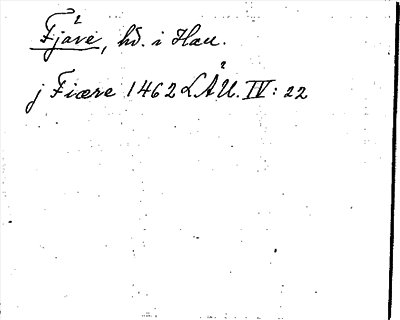 Fjäre, hd. i Hall.
j Fiære 1462 LÅU. IV: 22